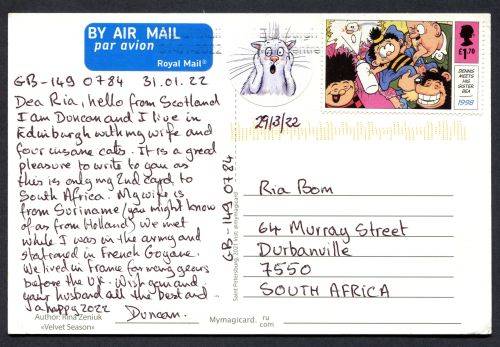 BY AIR MAIL
par avion
Royal Mail®
GB-149 0784 31.01.22
Dea Ria, hello from Scotland
I am Duncan and I live in
Edinburgh with my wife and
four insane cats. It is a great
pleasure to write to you as
this is only my 2nd card to
South Africa. My wife is
from Suriname (you might know
of as from Holland) We met
while I was in the army and
stationed in French Guyane.
We lived in France for many years
before the UK. Wish you and
your husband all the best and
a happy 2022
Duncan.
Author: Rina Zeniuk
«Velvet Season»
Mymagicard.ru
com
GB-149 0784
£1.70
DENNIS
MEETS
HIS
SISTER
BEA
1998
29/3/22
Ria Bom
64 Murray Street
Durbanville
7550
SOUTH AFRICA